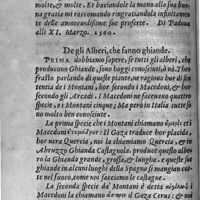 molte, & molte. Et baciandole la mano alla sua buo
na gratia mi raccomando ringratiandola infinitamen
te delle amoreuolissime sue proferte. Di Padoua
alli XI. Marzo. 1560.
De gli Alberi, che fanno ghiande.
PRIMA dobbiamo sapere, se tutti gli alberi, che
producono Ghiande, sono hoggi conosciuti, ò nò. Tho
frasto parlando di queste piante, ne ragiona hor di sen
tentia de i Montani, hor secondo i Macedoni, & hor
secondo gli Arcadi. I Macedoni ne facemmo quattro
specie, et i Montani cinque; Ma però in Italia tutte so
no molto ben conosciute.
La prima specie che i Montani chiamano et i
Macedoni Il Gaza traduce hor placida,
hor uera Quercia, noi la chiamiamo Quercia, & in
Abruzzo Ghianda Castagnola. produce questo albe
ro la Ghianda grande, grossa, & lunga, e queste son
quelle che in alcuni luoghi della Spagna si mangian cot
te nel fuoco, come noi facciamo le castagne.
La seconda specie da' Montani è detta
Macedoni la chiamano il Gaza Cerus; & noi